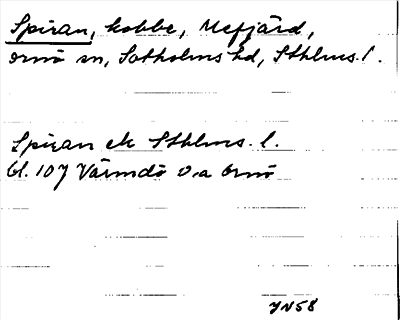 Spiran, kobbe, Mefjärd,
Ornö sn, Sotholms hd, Sthlms l.
Spiran ek Sthlms. l.
bl. 107 Värmdö o.a Ornö
JN58